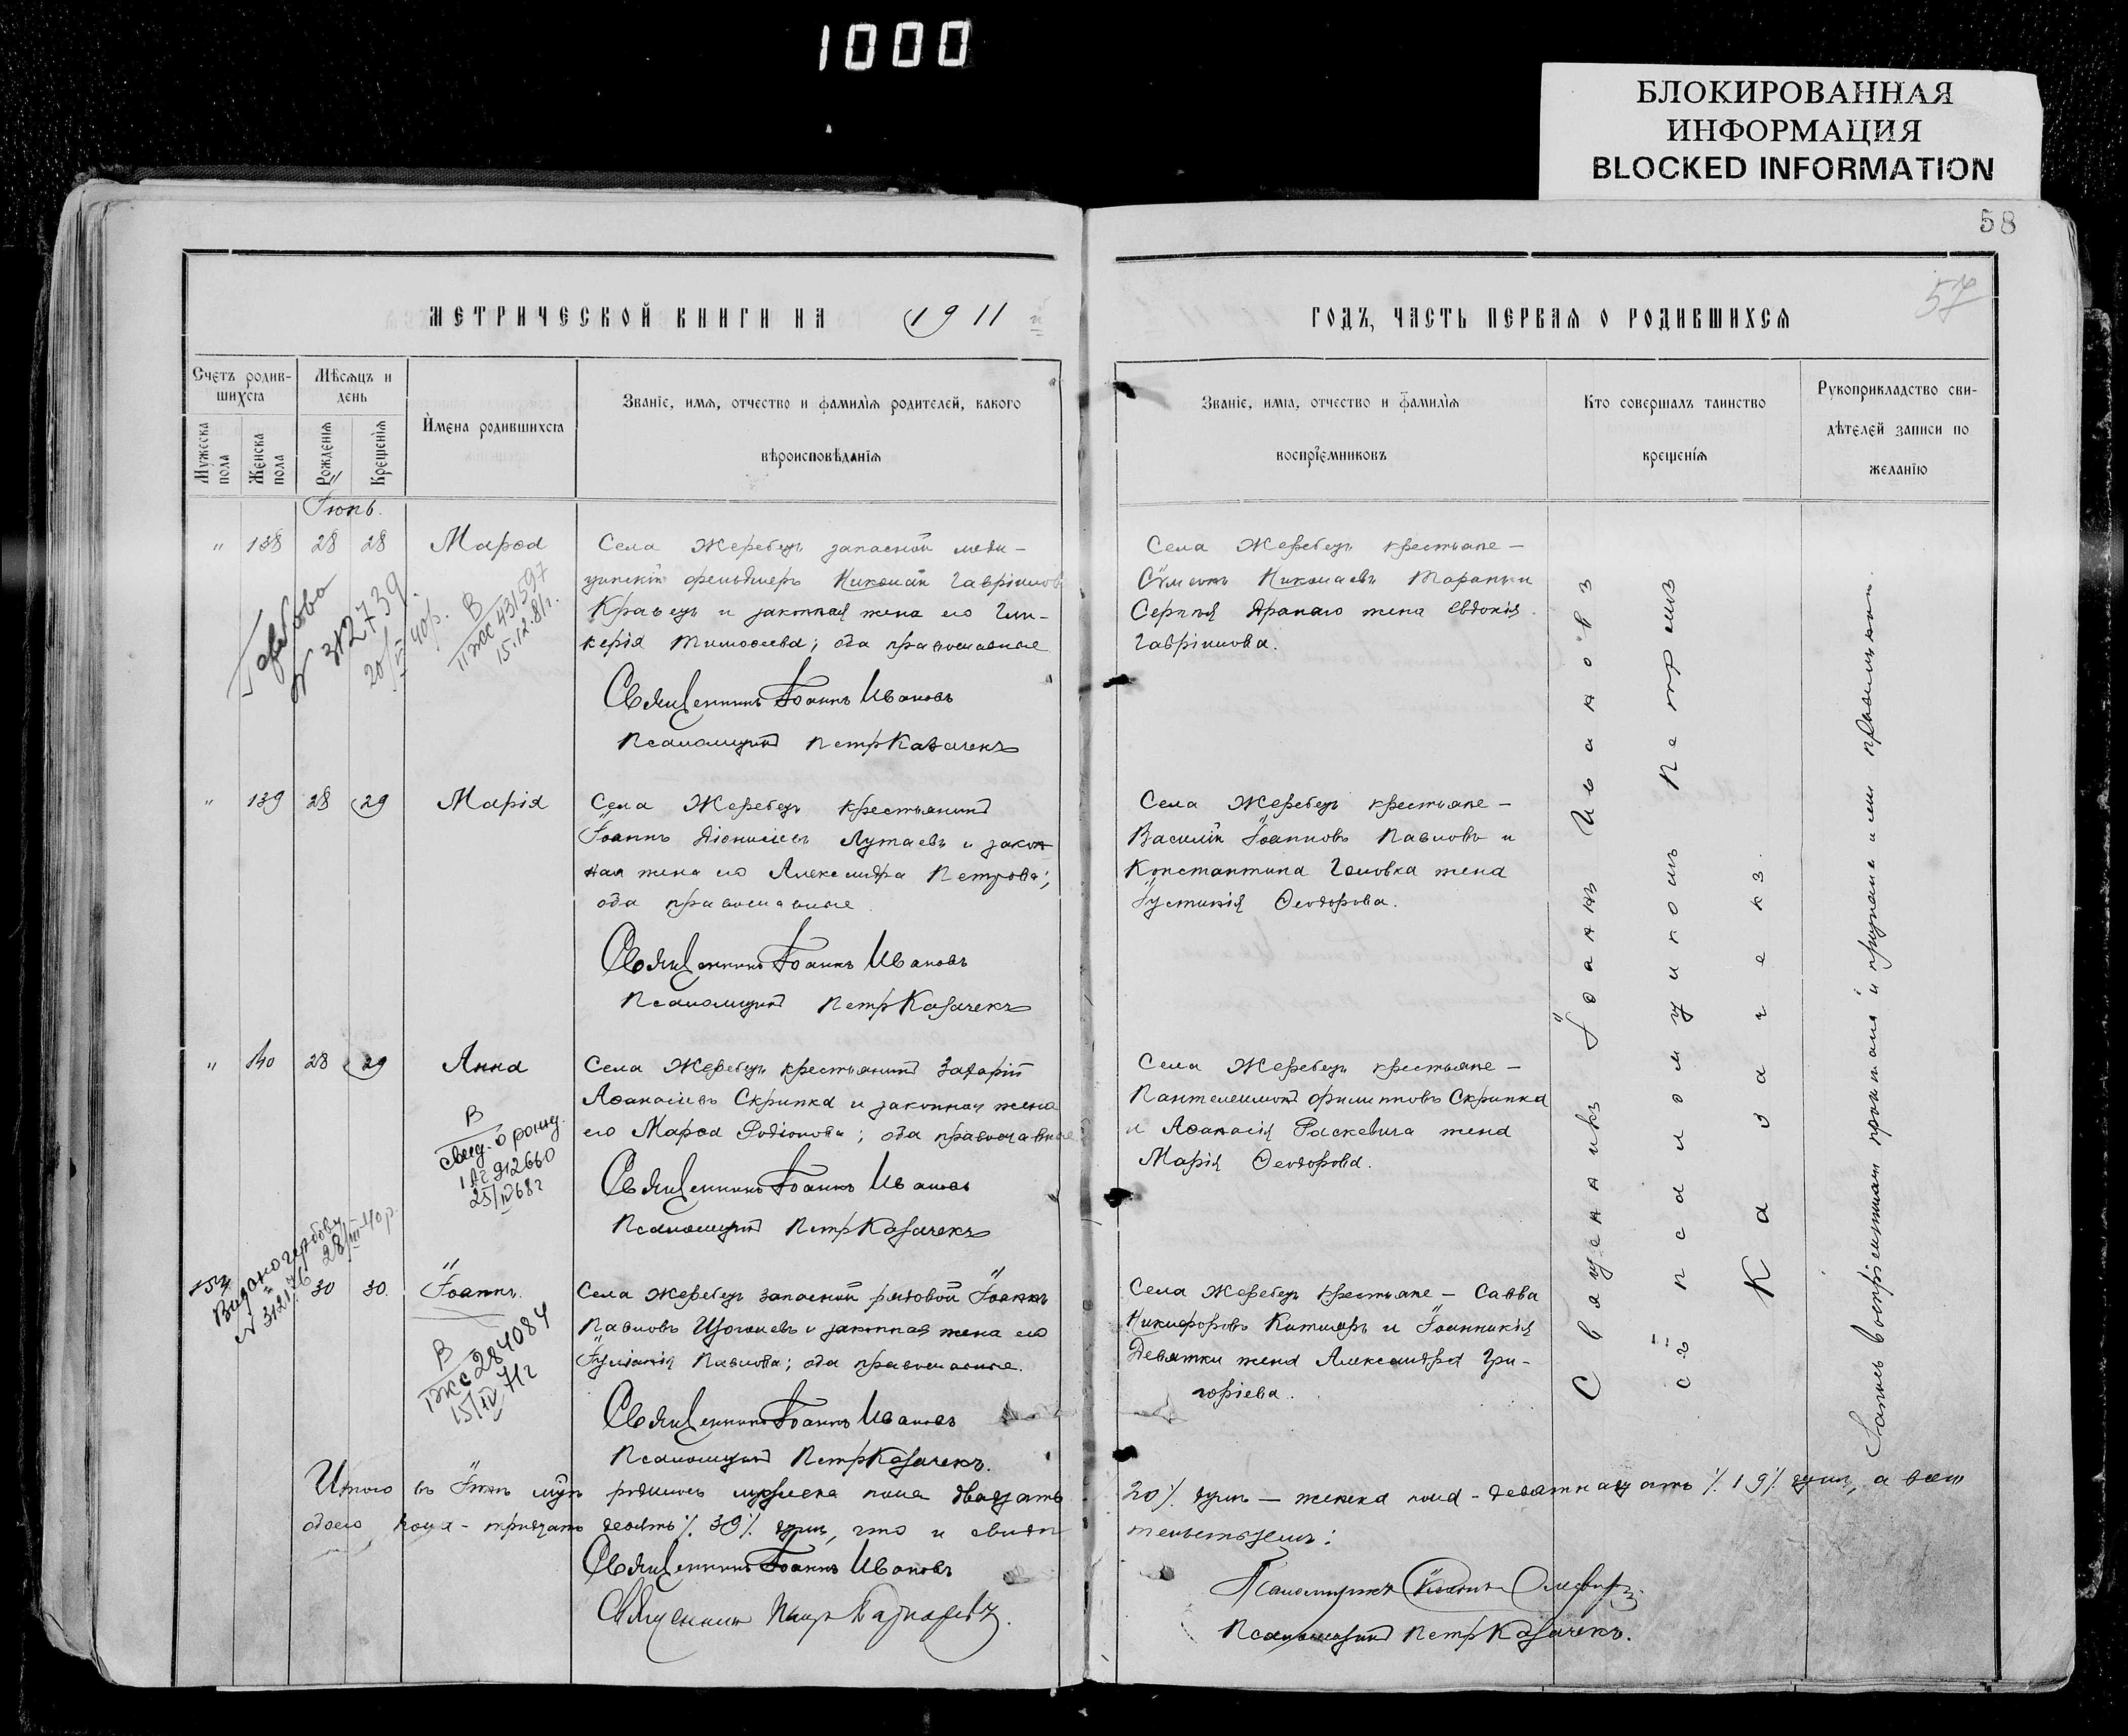 1000
БЛОКИРОВАННАЯ
ИНФОРМАЦИЯ
BLOCKED INFORMATION
58
57
МЕТРИЧЕСКОЙ КНИГИ НА 1911
ГОДЪ, ЧАСТЬ ПЕРВАЯ О РОДИВШИХСЯ
Счетъ родив-
шихся
Мужеска
пола
Женска
пола
Мѣсяцъ и
день
Рожденія
Крещенія
Имена родившихся
Званіе, имя, отчество и фамилія родителей, какого
вѣроисповѣданія
Званіе, имя, отчество и фамилія
воспріемниковъ
Кто совершалъ таинство
крещенія
Рукоприкладство сви-
дѣтелей записи по
желанію
Іюнь.
" 138 28 28 Марѳа
Села Жеребецъ запасной меди-
цинскій фельдшеръ Николай Гавріиловъ
Кравецъ и законная жена его Гли-
керія Тимоѳеева; оба православные
Священникъ Іоаннъ Ивановъ
Псаломщикъ Петръ Казачекъ
Села Жеребецъ крестьяне –
Сѵмеонъ Николаевъ Таранъ и
Сергія Драпаго жена Евдокія
Гавріилова.
№ 312739
20/II 40р.
В
II ЖС 431597
15.12.81г.
" 139 28 29 Марія
Села Жеребецъ крестьянинъ
Іоаннъ Діонисіевъ Лутаевъ и закон
ная жена его Александра Петрова;
оба православные
Священникъ Іоаннъ Ивановъ
Псаломщикъ Петръ Казачекъ
Села Жеребецъ крестьяне –
Василій Іоанновъ Павловъ и
Константина Головка жена
Іустинія Ѳеодорова.
" 140 28 29 Анна
Села Жеребецъ крестьянинъ Захарій
Аѳанасіевъ Скрипка и законная жена
его Марѳа Родіонова; оба православные
Священникъ Іоаннъ Ивановъ
Псаломщикъ Петръ Казачекъ
Села Жеребецъ крестьяне –
Пантелеимонъ Филипповъ Скрипка
и Аѳанасія Раскевича жена
Марія Ѳеодорова.
В
свид. о рожд.
912660
25/IV 68г
30 30 Іоаннъ.
Села Жеребецъ запасной рядовой Іоаннъ
Павловъ и законная жена его
Іуліанія Павлова; оба православные.
Священникъ Іоаннъ Ивановъ
Псаломщикъ Петръ Казачекъ.
Села Жеребецъ крестьяне – Савва
Никифоровъ и Іоанникія
Девятки жена Александра Гри-
горіева.
Видано
28/III 40р.
В
ІЖС 284084
15/IV 71г
Священникъ Іоаннъ Ивановъ
съ псаломщикомъ Петромъ
Казачекъ.
Итого въ Іюнѣ родилось мужеска пола двадцать
20% душъ – женска пола – девятнадцать % 19% душъ, а всего
обоего пола – тридцать девять % 39% душъ, что и свидѣ
тельствуемъ:
Священникъ Іоаннъ Ивановъ
Священникъ
Псаломщикъ
Псаломщикъ Петръ Казачекъ.